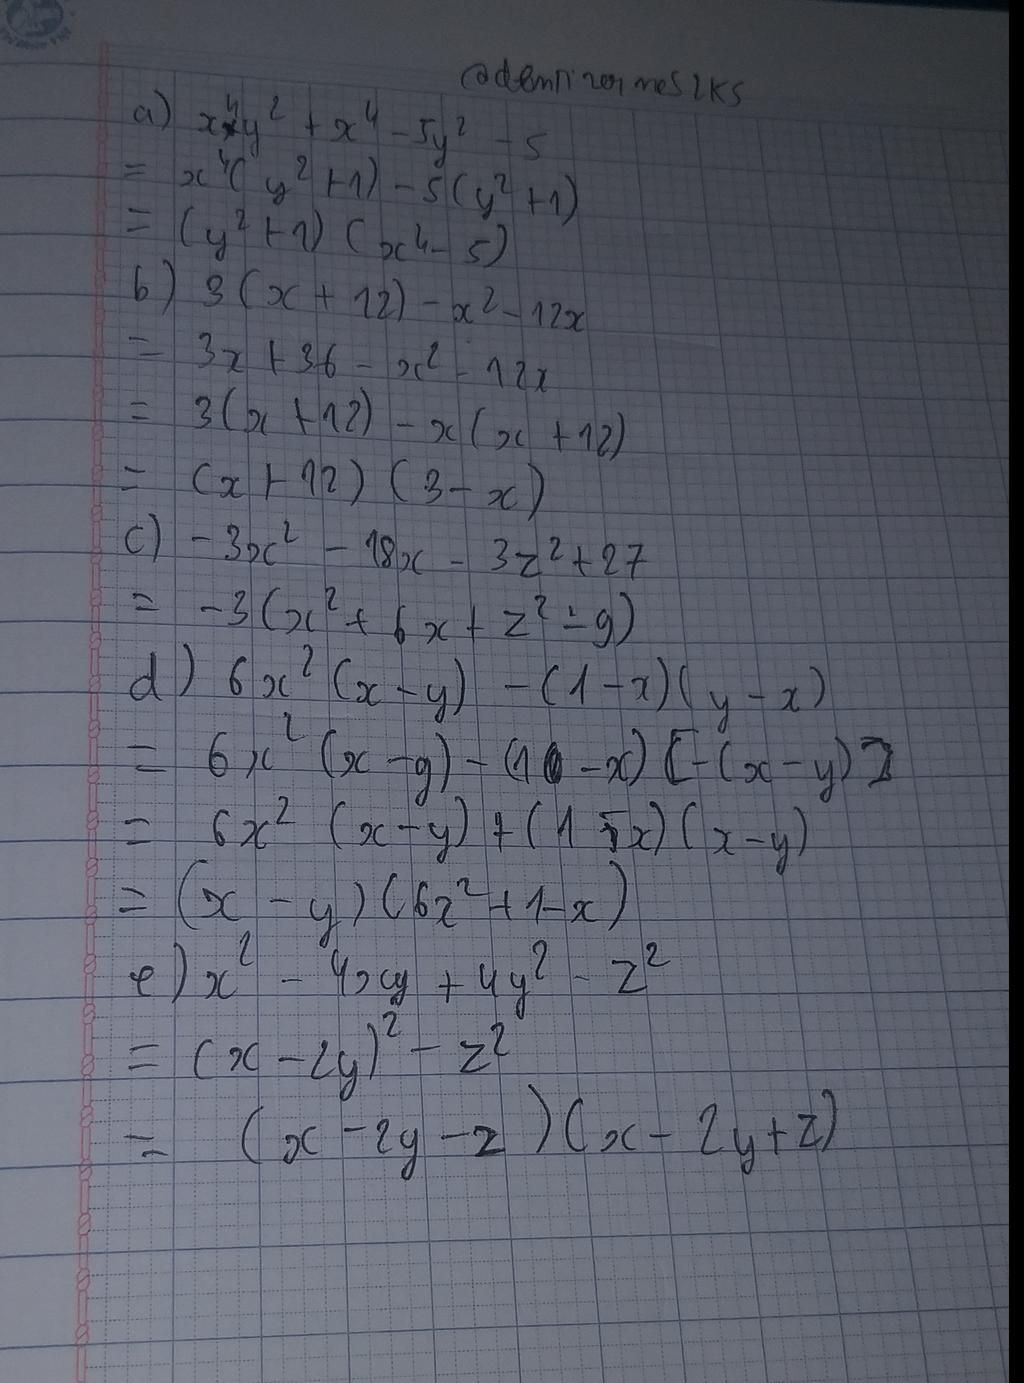 a) x⁴y² + x⁴ - 5y² - 5
= x⁴(y²+1) - 5(y²+1)
= (y²+1)(x⁴-5)
b) 3(x+12) - x² - 12x
= 3x + 36 - x² - 12x
= 3(x+12) - x(x+12)
= (x+12)(3-x)
c) -3x² - 18x - 3z² + 27
= -3(x² + 6x + z² - 9)
d) 6x²(x-y) - (1-x)(y-x)
= 6x²(x-y) - (1-x)[-(x-y)]
= 6x²(x-y) + (1-x)(x-y)
= (x-y)(6x²+1-x)
e) x² - 4xy + 4y² - z²
= (x-2y)² - z²
= (x-2y-z)(x-2y+z)